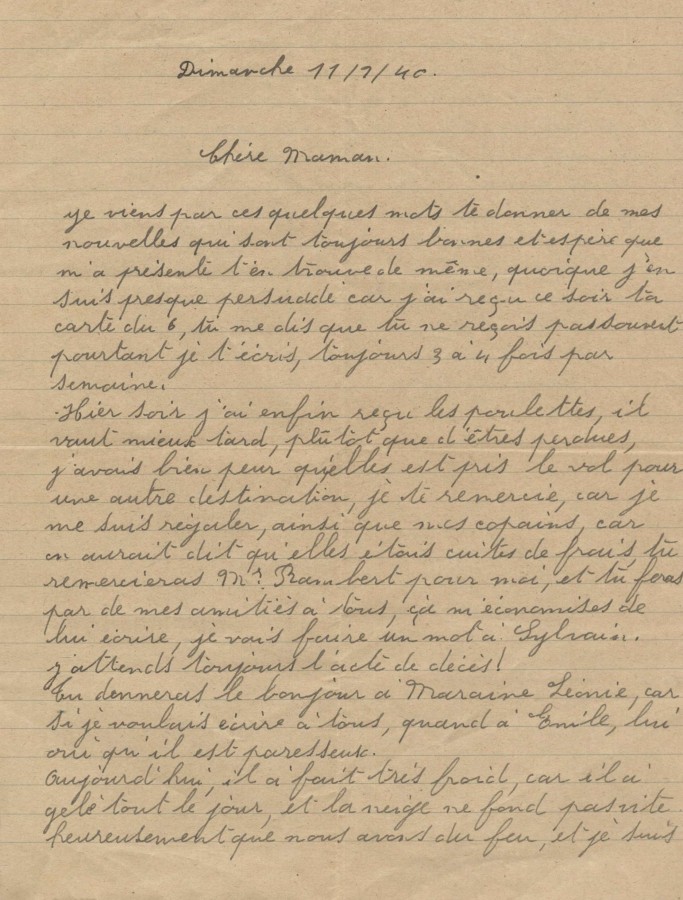 Dimanche 11/2/40.
Chère Maman.
je viens par ces quelques mots te donner de mes
nouvelles qui sont toujours bonnes et espère que
m'a présente t'en trouve de même, quoique j'en
suis presque persuadé car j'ai reçu ce soir ta
carte du 6, tu me dis que tu ne reçois pas souvent
pourtant je t'écris, toujours 3 à 4 fois par
semaine.
Hier soir j'ai enfin reçu les poulettes, il
vaut mieux tard, plûtot que d'êtres perdues,
j'avais bien peur qu'elles est pris le vol pour
une autre destination, je te remercie, car je
me suis régaler, ainsi que mes copains, car
on aurait dit qu'elles étais cuites de frais, tu
remercieras Mr. Rambert pour moi, et tu feras
par de mes amitiés à tous, çà m'économises de
lui écrire, je vais faire un mot à Sylvain.
j'attends toujours l'acte de décès!
Tu donneras le bonjour à Maraine Léonie, car
si je voulais écrire à tous, quand à Emile, lui
oui qu'il est paresseux.
Aujourd'hui, il a fait très froid, car il a
gelé tout le jour, et la neige ne fond pas vite
heureusement que nous avons du feu, et je suis